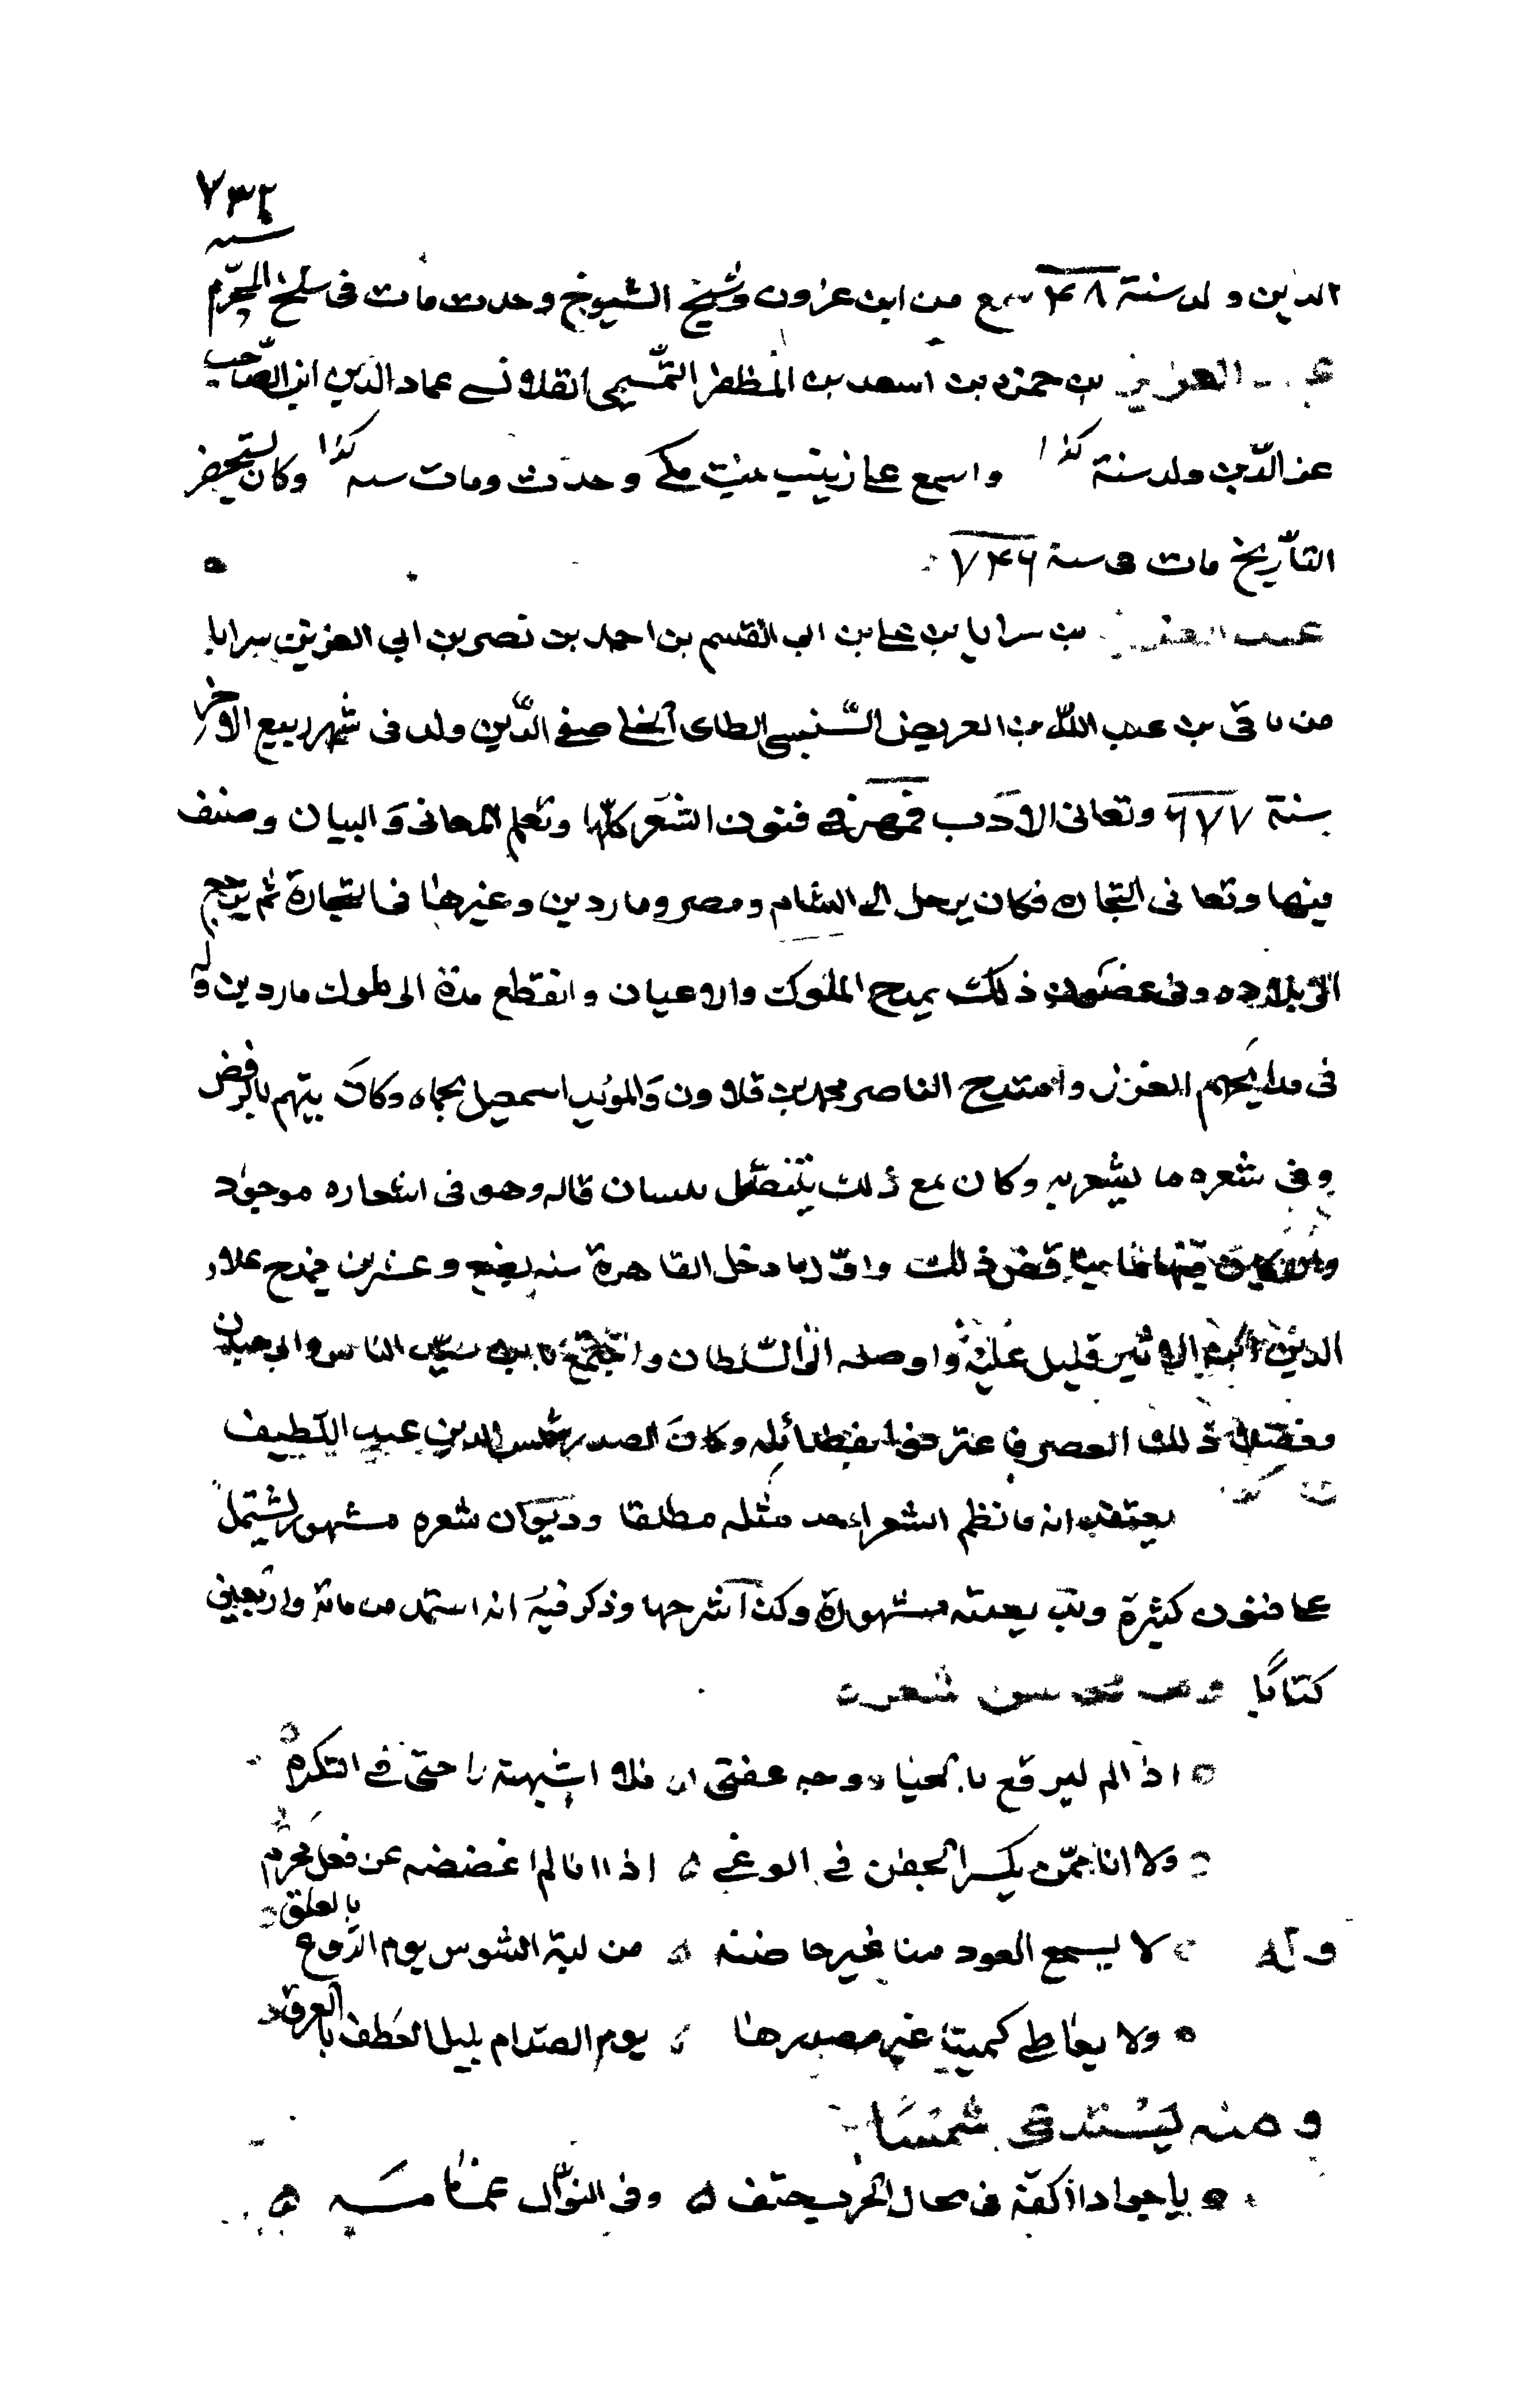 سنة ٧٣٢
الدين ولد سنة ٤٨ سمع من ابن عزون وشيخ الشيوخ وحدث مات فى سلخ المحرّم
عبد العزيز بن حمزه بن اسعد بن المظفر التّميمى القلانسى عماد الدين ابن الصّاحب
عز الدّين ولد سنة كذا واسمع على زينب بنت مكى وحدّث ومات سنه كذا وكان يستحضر
التأريخ مات فى سنة ٧٤٦
عبد العزيز بن سرايا بن على بن ابى القسم بن احمد بن نصر بن ابى العز بن سرايا
بن باقى بن عبد اللّه بن العريض السّنبسى الطاى الحلى صفى الدّين ولد فى شهر ربيع الاخر
سنة ٦٧٧ وتعانى الادب فمهر فى فنون الشعر كلّها وتعلم المعانى والبيان وصنف
فيها وتعانى التجاره فكان يرحل الى الشام ومصر وماردين وغيرها فى التجارة ثم يرجع
الى بلاده وفى غضون ذلك يمدح الملوك والاعيان وانقطع مدة الى ملوك ماردين وله
فى مدايحهم الغرر وامتدح الناصر محمد بن قلاون والمؤيد اسمعيل بحماه وكان يتهم بالرفض
وفى شعره ما يشعر به وكان مع ذلك يتنصّل بلسان قاله وهو فى اشعاره موجود
وان كان فيها ما يناقض ذلك واوّل ما دخل القاهرة سنه بضع وعشرين فمدح علاء
الدين ابن الاثير فاقبل عليه واوصله الى السّلطان واجتمع بابن سيّد الناس وابى حيان
وفضلاء ذلك العصر فاعترفوا بفضائله وكان الصدر شمس الدين عبد اللطيف
كذا يعتقد انه ما نظم الشعر احد مثله مطلقا وديوان شعره مشهور يشتمل
على فنون كثيرة وبديعيته مشهورة وكذا شرحها وذكر فيه انه استمد من مائة واربعين
كتابًا ومن محاسن شعره
اذا لم ليرقع بالحيا وجه عفتى فلا اشبهته راحتى فى التكرم
ولا انا ممّن يكسر الجفن فى الوغى اذا انا لم اغضضه عن فعل محرّم
وله لا يسمع العود منا غير خاضبه من لبة الشوس يوم الرّوع بالعلق
ولا يعاطى كميتا غير مصدرها يوم الصّدام بليل العطف بالعرق
ومنه يستدعى شمسًا
يا جوادا كفّه فى مجال الحرب حتف وفى النوّال غمامه